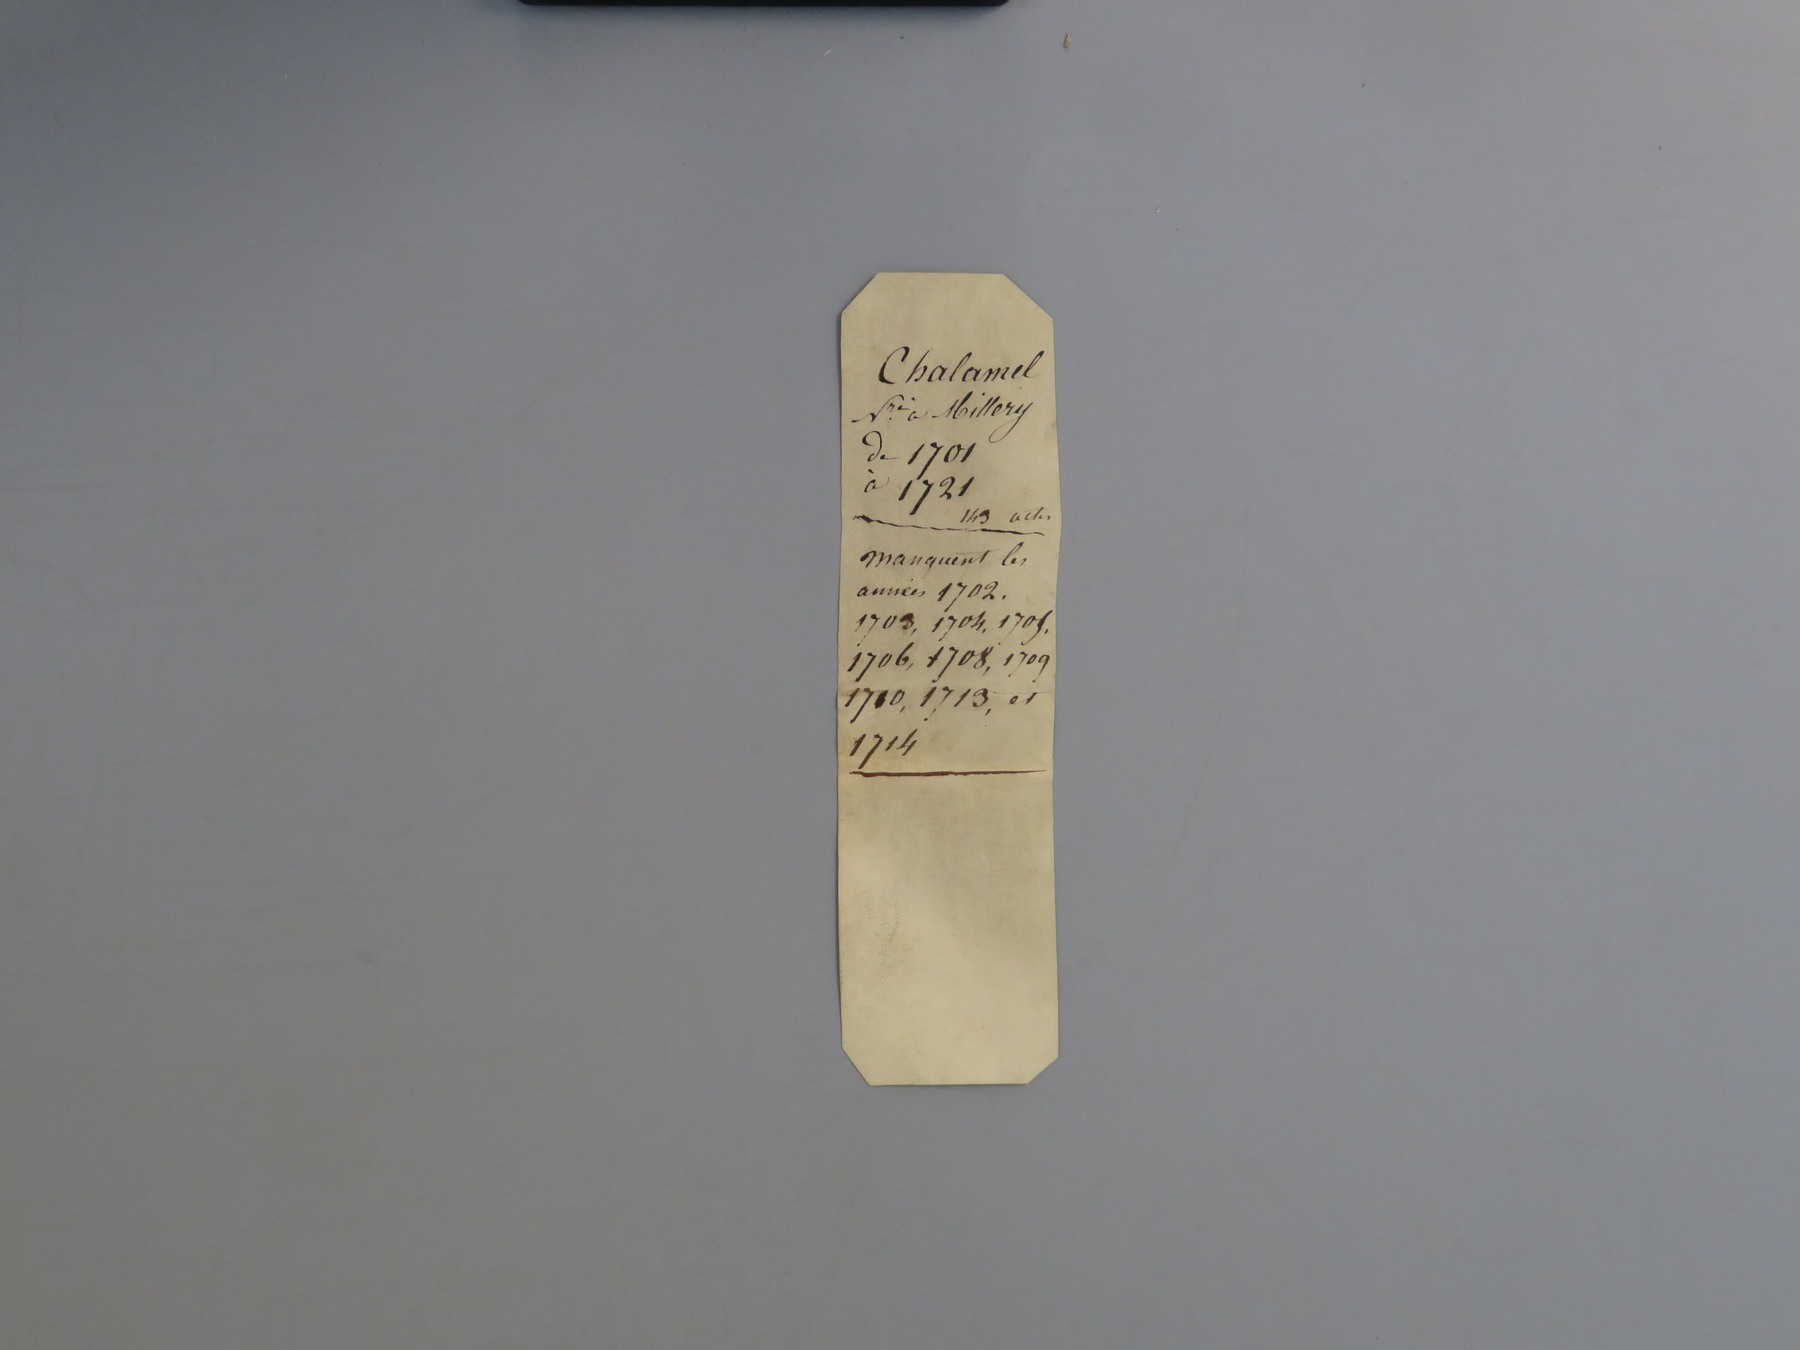 Chalamel
Nre à Millery
De 1701
à 1721
143 actes
manquent les
années 1702.
1703, 1704, 1705,
1706, 1708, 1709
1710, 1713, et
1714